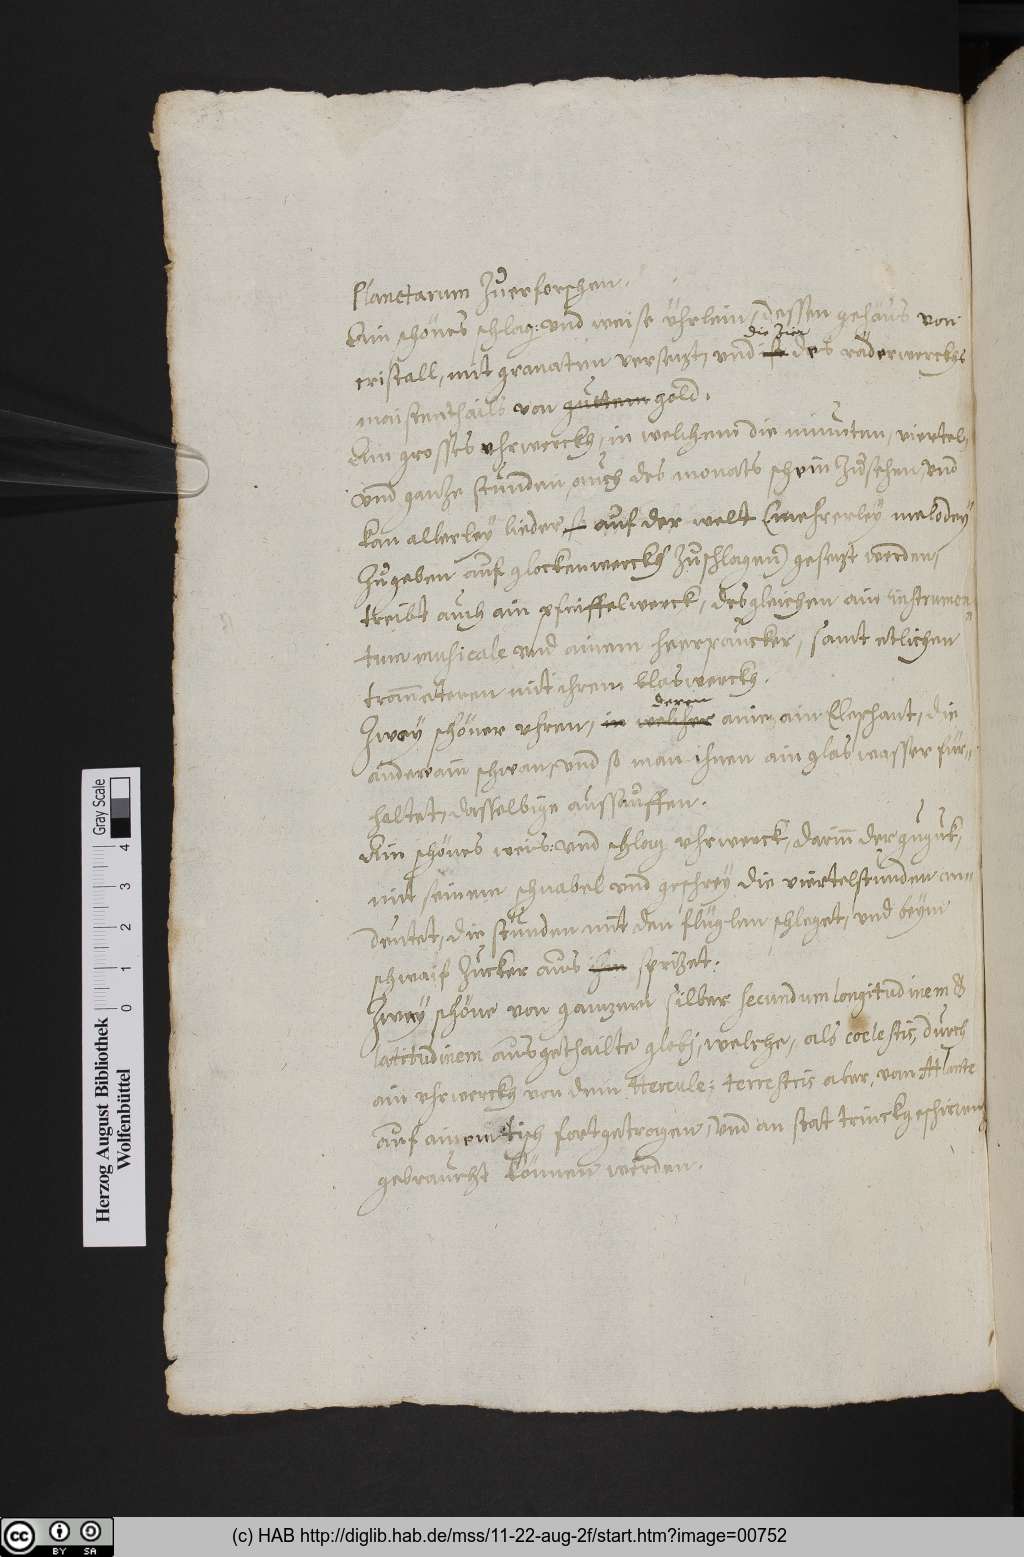 Planetarum zuerforschen.
Ain schönes schlag: und weise Uhrlein, dessen gehäus von
die Zier
cristall, mit granaten versetzt, und ist des räderwerckhs
maistenthails von guttem gold.
Ain grosses uhrwerckh, in welchem die minuten, viertel,
und gantze stunden, auch des monats schein zusehen, und
kan allerley lieder, auf der welt (mehrerley melodey
zugeben auf glockenwerckh zuschlagen) gesetzt werden,
treibt auch ain pfeiffelwerck, desgleichen ain instrumen-
tum musicale und ainem heerpaucker, samt etlichen
trommeteren mit ihrem blaswerckh.
deren
Zwey schöner uhren, in welcher aine, ain Elephant, die
ander ain schwan, und so man ihnen ain glas wasser für-
haltet, dasselbige aussauffen.
Ain schönes weis: und schlag uhrwerck, darinn der guguk,
mit seinem schnabel und geschrey die viertelstunden an-
deutet, die stunden mit den flüglen schleget, und beym
schwaif zucker aus ihm sprizet.
Zwey schöne von gantzem silber secundum longitudinem &
latitudinem ausgethailte globj, welche, als coelestis, durch
ain uhrwerckh von dem Hercule: terrestris aber, vom Atlante
auf ainem tisch fortgetragen, und an stat trinckgeschirren
gebraucht können werden.
Herzog August Bibliothek
Wolfenbüttel
0 1 2 3 4
Gray Scale
cc BY SA
(c) HAB http://diglib.hab.de/mss/11-22-aug-2f/start.htm?image=00752